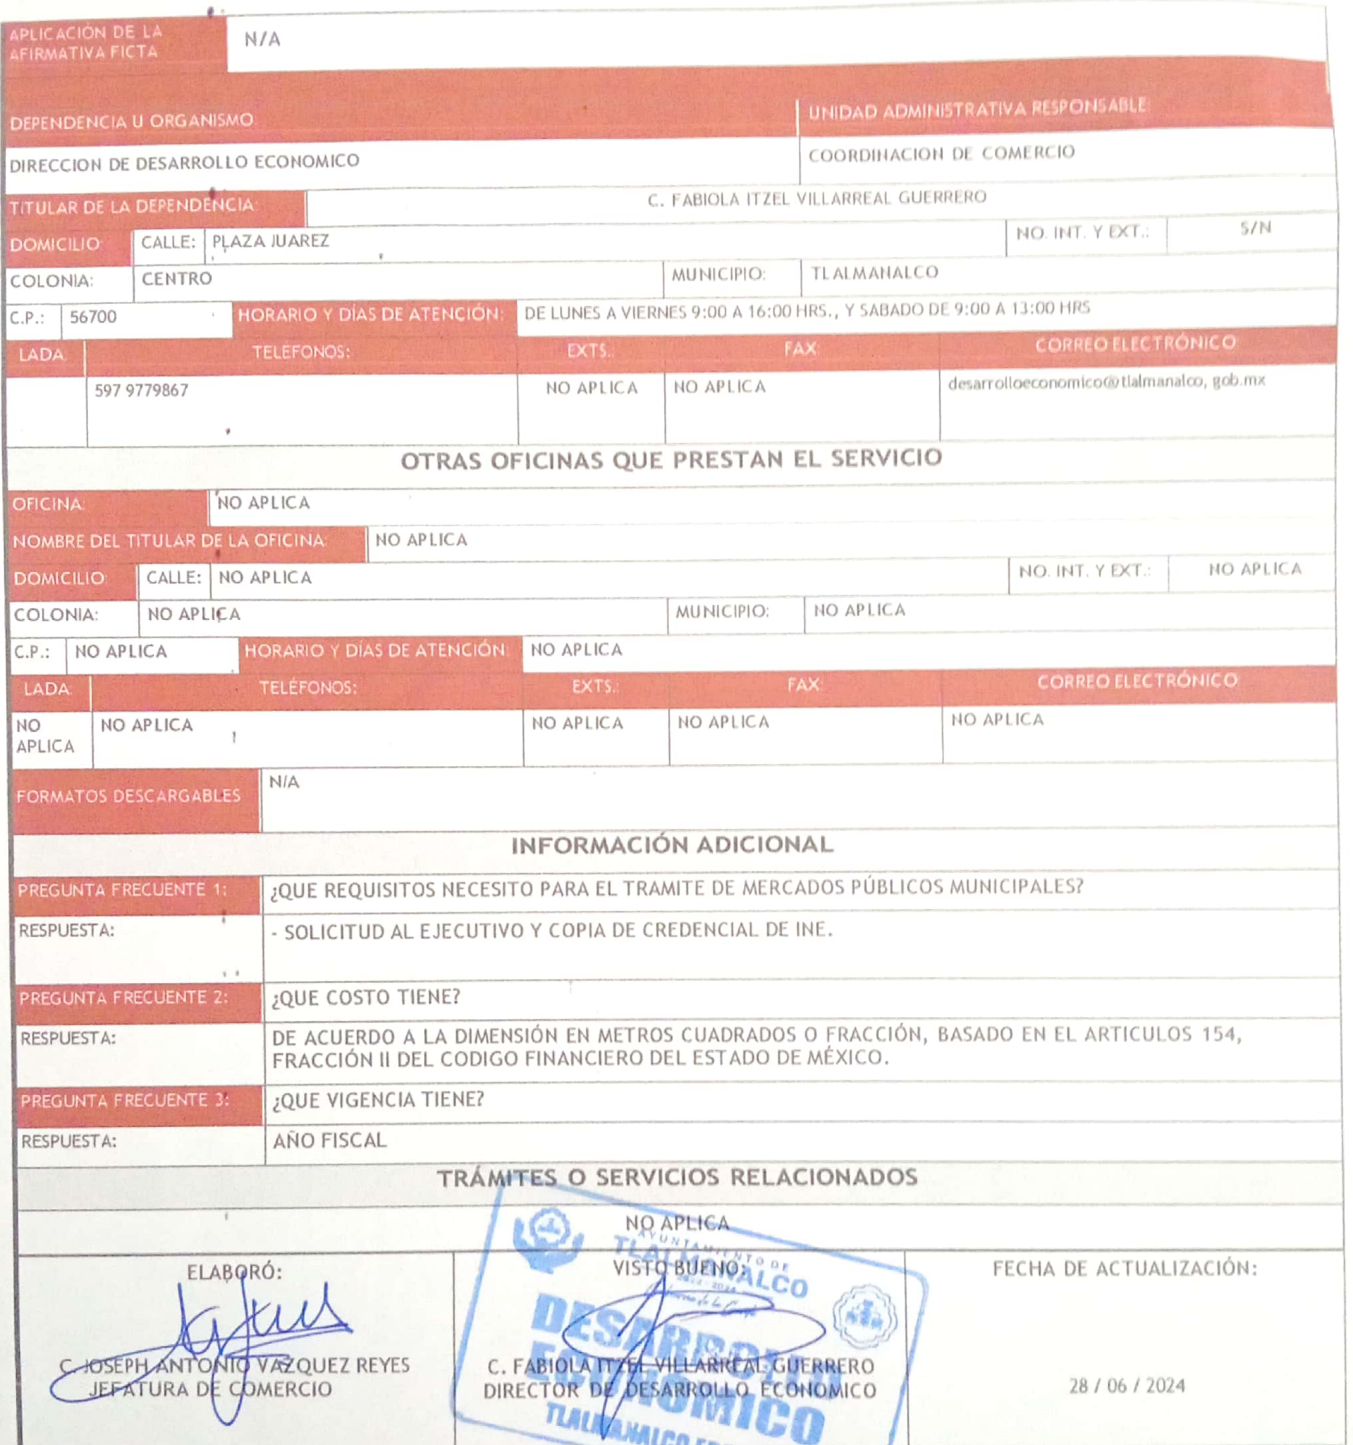 APLICACIÓN DE LA
AFIRMATIVA FICTA
N/A
DEPENDENCIA U ORGANISMO:
UNIDAD ADMINISTRATIVA RESPONSABLE:
DIRECCION DE DESARROLLO ECONOMICO
COORDINACION DE COMERCIO
TITULAR DE LA DEPENDENCIA:
C. FABIOLA ITZEL VILLARREAL GUERRERO
DOMICILIO: CALLE: PLAZA JUAREZ
NO. INT. Y EXT.: S/N
COLONIA: CENTRO
MUNICIPIO: TLALMANALCO
C.P.: 56700
HORARIO Y DÍAS DE ATENCIÓN:
DE LUNES A VIERNES 9:00 A 16:00 HRS., Y SABADO DE 9:00 A 13:00 HRS
LADA: TELEFONOS: EXTS.: FAX: CORREO ELECTRÓNICO:
597 9779867 NO APLICA NO APLICA desarrolloeconomico@tlalmanalco, gob.mx
OTRAS OFICINAS QUE PRESTAN EL SERVICIO
OFICINA: NO APLICA
NOMBRE DEL TITULAR DE LA OFICINA: NO APLICA
DOMICILIO: CALLE: NO APLICA
NO. INT. Y EXT.: NO APLICA
COLONIA: NO APLICA
MUNICIPIO: NO APLICA
C.P.: NO APLICA
HORARIO Y DÍAS DE ATENCIÓN: NO APLICA
LADA: TELÉFONOS: EXTS.: FAX: CORREO ELECTRÓNICO:
NO
APLICA
NO APLICA NO APLICA NO APLICA NO APLICA
FORMATOS DESCARGABLES
N/A
INFORMACIÓN ADICIONAL
PREGUNTA FRECUENTE 1: ¿QUE REQUISITOS NECESITO PARA EL TRAMITE DE MERCADOS PÚBLICOS MUNICIPALES?
RESPUESTA: - SOLICITUD AL EJECUTIVO Y COPIA DE CREDENCIAL DE INE.
PREGUNTA FRECUENTE 2: ¿QUE COSTO TIENE?
RESPUESTA: DE ACUERDO A LA DIMENSIÓN EN METROS CUADRADOS O FRACCIÓN, BASADO EN EL ARTICULOS 154,
FRACCIÓN II DEL CODIGO FINANCIERO DEL ESTADO DE MÉXICO.
PREGUNTA FRECUENTE 3: ¿QUE VIGENCIA TIENE?
RESPUESTA: AÑO FISCAL
TRÁMITES O SERVICIOS RELACIONADOS
NO APLICA
ELABORÓ:
C. JOSEPH ANTONIO VAZQUEZ REYES
JEFATURA DE COMERCIO
VISTO BUENO:
C. FABIOLA ITZEL VILLARREAL GUERRERO
DIRECTOR DE DESARROLLO ECONOMICO
AYUNTAMIENTO DE
TLALMANALCO
DESARROLLO
ECONÓMICO
FECHA DE ACTUALIZACIÓN:
28 / 06 / 2024